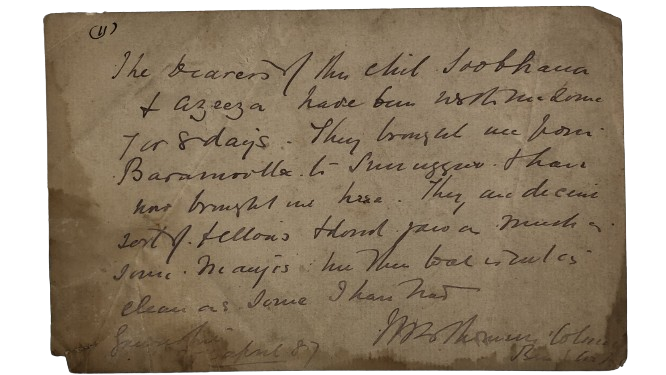 (11)
The bearers of this chit Soobhana
& Azeeza have been with me some
7 or 8 days. They brought me from
Baramoolla to Srinuggur & have
now brought me here. They are decent
sort of fellows & dont jaw as much as
some Manjis but their boat is not as
clean as some I have had
April 87